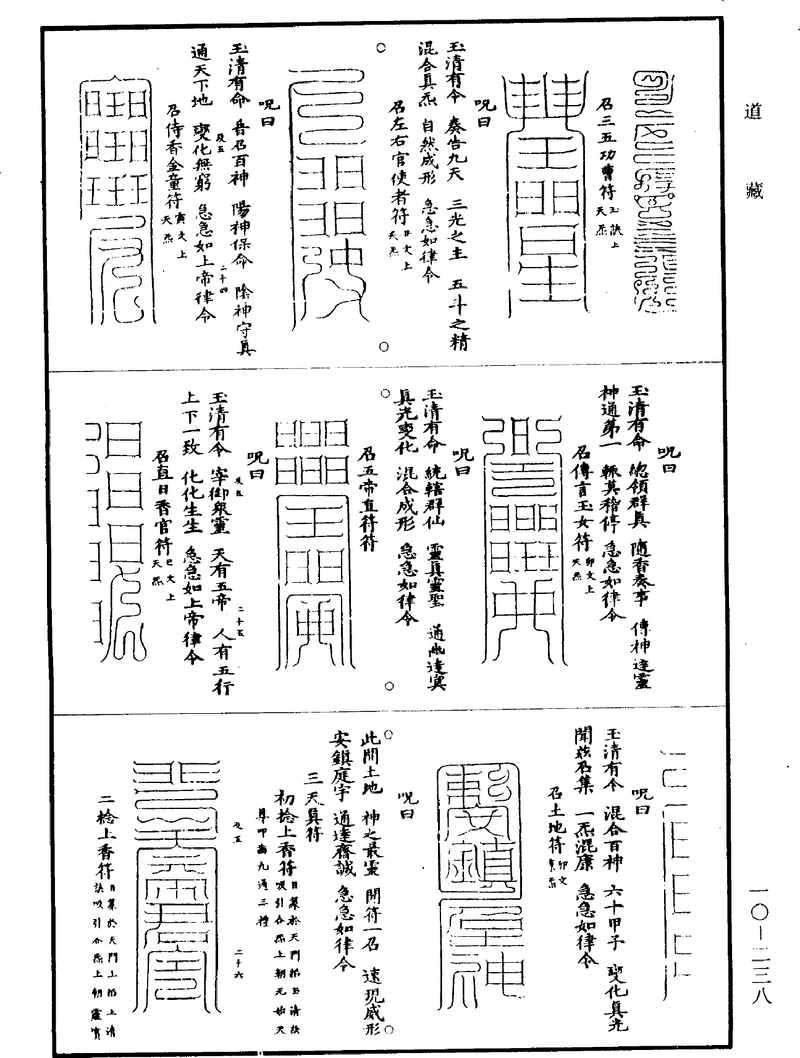 道藏
召三五功曹符 玉訣上天炁
呪曰
玉清有令 奏告九天 三光之主 五斗之精
混合真炁 自然成形 急急如律令
召左右官使者符 丑文上天炁
呪曰
玉清有命 普召百神 陽神保命 陰神守真
通天下地 變化無窮 急急如上帝律令
及五 二十四
召侍香金童符 寅文上天炁
呪曰
玉清有命 總領群真 随香奏事 傳神達靈
神通第一 輒莫稽停 急急如律令
召傳言玉女符 卯文上天炁
呪曰
玉清有命 統轄群仙 靈真靈聖 通幽達冥
真光變化 混合成形 急急如律令
召五帝直符符
呪曰
玉清有令 宰御衆靈 天有五帝 人有五行
及五 二十五
上下一致 化化生生 急急如上帝律令
召直日香官符 巳文上天炁
呪曰
玉清有令 混合百神 六十甲子 變化真光
聞兹召集 一炁混康 急急如律令
召土地符 卯文
呪曰
此間土地 神之最靈 開符一召 速現威形
安鎮庭宇 通達齋誠 急急如律令
三天真符
初捻上香符 目篆於天門招玉清訣吸引介炁上朝元始天
尊叩齒九通三禮
及五 二十六
二捻上香符 目篆於天門上招上清訣吸引介炁上朝靈寶
一〇—二三八